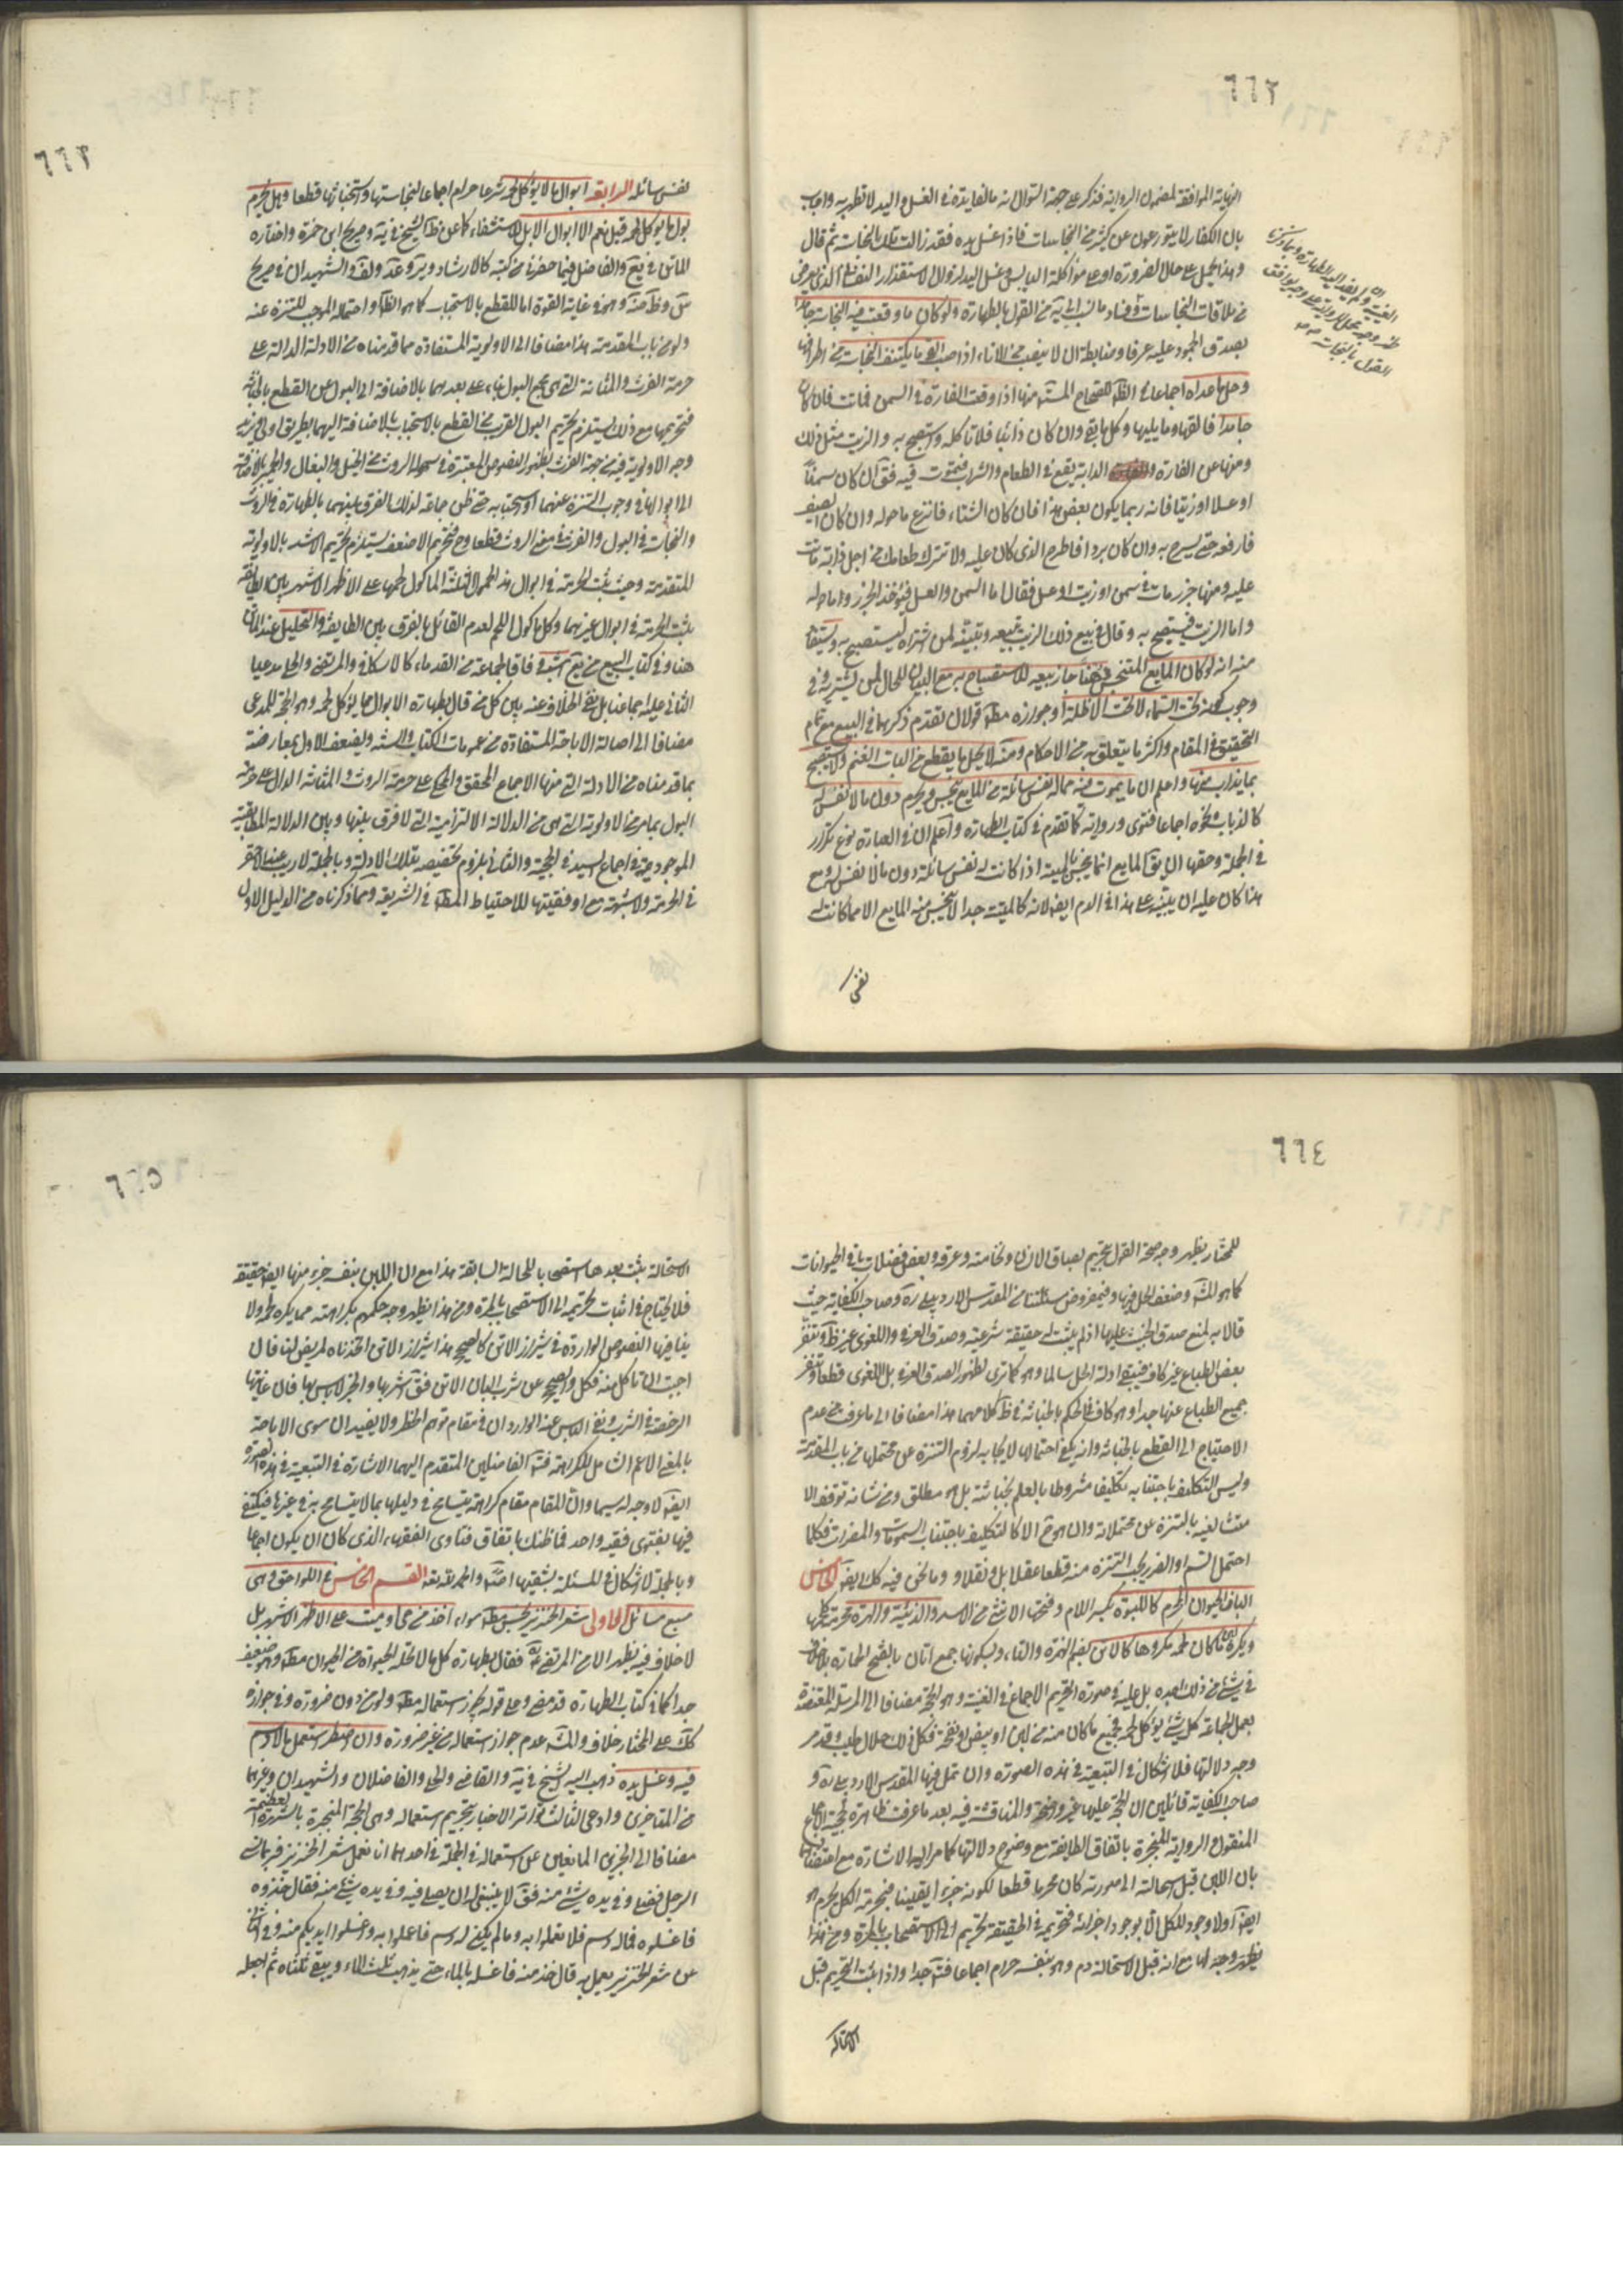 ٦٦٢
النهاية الموافقة لمضمون الرواية فذكر على جهة السؤال انه ما الفايدة في الغسل واليد لا تطهر به واجاب
بان الكفار لا يتورعون عن كثير من النجاسات فاذا غسل يده فقد زالت تلك النجاسة ثم قال
وهذا يحمل على حال الضرورة او على مؤاكلة اليابس وغسل اليد لزوال الاستقذار النفساني الذي يعرض
من ملاقات النجاسات وفساد ما نسب اليه من القول بالطهارة ولو كان ما وقعت فيه النجاسة جامدا
يصدق الجمود عليه عرفا وضابطه ان لا ينصب من الاناء اذا صب القي ما يكتنف النجاسة من اطرافها
وحل ما عداه اجماعا في الظاهر للصحاح المستفيضة منها اذا وقعت الفارة في السمن فماتت فان كان
جامدا فالقها وما يليها وكل ما بقي وان كان ذائبا فلا تاكله واستصبح به والزيت مثل ذلك
ومنها عن الفارة الدابة تقع في الطعام والشراب فتموت فيه فقال ان كان سمنا
او عسلا او زيتا فانه ربما يكون بعض هذا فان كان الشتاء فانزع ما حوله وان كان الصيف
فارفعه حتى يسرج به وان كان بردا فاطرح الذي كان عليه ولا تترك طعامك من اجل دابة ماتت
عليه ومنها جرز مات في سمن او زيت او عسل فقال اما السمن والعسل فيؤخذ الجرز وما حوله
واما الزيت فيستصبح به وقال في بيع ذلك الزيت تبيعه وتبينه لمن اشتراه ليستصبح به ويستفاد
منه انه لو كان المايع المتنجس دهنا جاز بيعه للاستصباح به مع البيان للحال لمن يشتريه وفي
وجوب كونه تحت السماء لا تحت الاظلة او جوازه مطلقا قولان تقدم ذكرهما في البيع مع تمام
التحقيق في المقام واكثر ما يتعلق به من الاحكام ومنه لا يحل ما يقطع من اليات الغنم ولا يستصبح
بما يذاب منها واعلم ان ما يموت فيه مما له نفس سائلة من المايع نجس ويحرم دون ما لا نفس له
كالذباب ونحوه اجماعا فتوى ورواية كما تقدم في كتاب الطهارة واعلم ان في العبارة نوع تكرار
في الجملة وحقها ان يقال المايع انما ينجس بالميتة اذا كانت لها نفس سائلة دون ما لا نفس له ومع
هذا كان عليه ان ينبه على هذا في الدم ايضا لانه كالميتة جدا لا ينجس منه المايع الا مما كانت له
نفس
٦٦٣
نفس سائلة الرابعة ابوال ما لا يؤكل لحمه شرعا حرام اجماعا لنجاستها واستخباثها قطعا وهل يحرم
بول ما يؤكل لحمه قيل نعم الا ابوال الابل للاستشفاء كما عن ظاهر الشيخ في ية وصريح ابن حمزة واختاره
الماتن في يع والفاضل فيما حضرني من كتبه كالارشاد وير وعد ولف والشهيدان في صريح
س وظ ضة وهو في غاية القوة اما للقطع بالاستخباث كما هو الظاهر او احتماله الموجب للتنزه عنه
ولو من باب المقدمة هذا مضافا الى الاولوية المستفادة مما قدمناه من الادلة الدالة على
حرمة الفرث والمثانة التي هي مجمع البول بناء على بعدهما بالاضافة الى البول عن القطع بالخباثة
فتحريمها مع ذلك يستلزم تحريم البول القريب من القطع بالاستخباث بالاضافة اليهما بطريق اولى
وجه الاولوية فيه من جهة الفرث بظهور النصوص المعتبرة في سهولة الروث من الخيل والبغال والحمير بالاضافة
الى ابوالها في وجوب التنزه عنهما او استحبابه حتى ظن جماعة لذلك الفرق بينهما بالطهارة في الروث
والنجاسة في البول والفرث في معنى الروث قطعا وح فتحريم الاضعف يستلزم تحريم الاشد بالاولوية
المتقدمة وحيث ثبت الحرمة في ابوال هذه الحمر الثلثة الماكول لحمها على الاظهر الاشهر بين الطايفة
يثبت الحرمة في ابوال غيرهما وكل ماكول اللحم لعدم القائل بالفرق بين الطايفة والتحليل عند الماتن
هنا وفي كتاب البيع من يع اشبه وفاقا لجماعة من القدماء كالاسكافي والمرتضى والحلي مدعيا
الثاني عليه اجماعنا بل نفى الخلاف عنه بين كل من قال بطهارة الابوال مما يؤكل لحمه وهو الحجة للمدعى
مضافا الى اصالة الاباحة المستفادة من عمومات الكتاب والسنة ويضعف الاول بمعارضة
بما قدمناه من الادلة التي منها الاجماع المحقق والمحكي على حرمة الروث والمثانة الدال على حرمة
البول بما مر من الاولوية التي هي من الدلالة الالتزامية التي لا فرق بينها وبين الدلالة المطابقية
الموجودة في اجماع السيد في الحجية والثاني بلزوم تخصيصه بتلك الادلة وبالجملة لا ريب عند الاحقر
في الحرمة ولا شبهة مع اوفقيتها للاحتياط المطلوب في الشريعة ومما ذكرناه من الدليل الاول
٦٦٤
للمختار يظهر وجه صحة القول بتحريم بصاق الانسان ونخامته وعرقه وبعض فضلات باقي الحيوانات
كما هو المش وضعف الحل فيها وفيمفروض مسئلتنا من المقدس الاردبيلي ره وصاحب الكفاية حيث
قالا به لمنع صدق الخبث عليها اذ لم يثبت له حقيقة شرعية وصدق العرفي واللغوي غير ظ وتنفر
بعض الطباع غير كاف فيبقى ادلة الحل سالما وهو كما ترى لظهور الصدق العرفي بل اللغوي قطعا وتنفر
جميع الطباع عنها جدا وهو كاف في الحكم بالخباثة في ظ كلامهما هذا مضافا الى ما عرفت من عدم
الاحتياج الى القطع بالخباثة وانه يكفي احتمالها لايجابه لزوم التنزه عن محتملها من باب المقدمة
وليس التكليف باجتنابه تكليفا مشروطا بالعلم بخباثته بل هو مطلق ومن شانه توقف الا
متثال فيه بالتنزه عن محتملاته وان هو ح الا كالتكليف باجتناب السموات والمضرات فكلما
احتمل السم او الضرر يجب التنزه منه قطعا عقلا بل ونقلا وما نحن فيه كك ايضا الخامس
البان الحيوان المحرم كاللبوة بكسر اللام وفتحها الانثى من الاسد والذئبة والهرة محرمة كلها
ويكره لبن ما كان لحمه مكروها كالاتن بضم الهمزة والتاء وبسكونها جمع اتان بالفتح الحمارة بلا خلاف
في شئ من ذلك اجده بل عليه في صورة التحريم الاجماع في الغنية وهو الحجة مضافا الى المرسلة المعتضدة
بعمل الجماعة كل شئ يؤكل لحمه فجميع ما كان منه من لبن او بيض او انفحة فكل ذلك حلال طيب وقد مر
وجه دلالتها فلا اشكال في التبعية في هذه الصورة وان تامل فيها المقدس الاردبيلي ره و
صاحب الكفاية قائلين ان الحجة عليها غير واضحة والمناقشة فيه بعد ما عرفت ظاهرة لحجية الاجماع
المنقول والرواية المنجبرة باتفاق الطايفة مع وضوح دلالتها كما مر اليه الاشارة مع اعتضادهما
بان اللبن قبل استحالته الى صورته كان محرما قطعا لكونه جزءا يقينا فحرمة الكل يحرم هو
ايضا اذ لا وجود للكل الا بوجود اجزائه فتحريمه في الحقيقة تحريم لها فالاستصحاب بالحرمة ومن هذا
يظهر وجه الها مع انه قبل الاستحالة دم وهو بنفسه حرام اجماعا فت جدا واذا ثبت التحريم قبل
الاستحالة
٦٦٥
الاستحالة يثبت بعدها استصحابا للحالة السابقة هذا مع ان اللبن بنفسه جزء منها ايضا حقيقة
فلا يحتاج في اثبات تحريمه الى الاستصحاب بالمرة ومن هذا يظهر وجه حكمهم بكراهته مما يكره لحمه ولا
ينافيها النصوص الواردة في شيراز الاتن كالصحيح هذا شيراز الاتن اتخذناه لمريض لنا فان
احببت ان تاكل منه فكل والصحيح عن شرب البان الاتن فقال اشربها والخبر لا باس بها فان غايتها
الرخصة في الشرب ونفي الباس عنه الواردان في مقام توهم الحظر ولا يفيدان سوى الاباحة
بالمعنى الاعم الشامل للكراهة فت الفاضلين المتقدم اليهما الاشارة في التبعية في هذه الصورة
ايضا لا وجه له سيما وان المقام مقام كراهة يتسامح في دليلها بما لا يتسامح به في غيرها فيكتفى
فيها بفتوى فقيه واحد فما ظنك باتفاق فتاوى الفقهاء الذي كاد ان يكون اجماعا
وبالجملة لا اشكال في المسئلة بشقيها اصلا والحمد لله تعالى القسم الخامس في اللواحق وهي
سبع مسائل الاولى شعر الخنزير نجس مطلقا سواء اخذ من حي او ميت على الاظهر الاشهر بل
لا خلاف فيه يظهر الا من المرتضى ره فقال بطهارة كل ما لا تحله الحيوة من الحيوان مطلقا وهو ضعيف
جدا كما في كتاب الطهارة قد مضى وعلى قوله يجوز استعماله مطلقا ولو من دون ضرورة وفي جوازه
كك على المختار خلاف والمش عدم جواز استعماله من غير ضرورة وان اضطر استعمل ما لا دسم
فيه وغسل يده ذهب اليه الشيخ في ية والقاضي والحلي والفاضلان والشهيدان وغيرهما
من المتاخرين وادعى الثالث تواتر الاخبار بتحريم استعماله وهي الحجة المنجبرة بالشهرة العظيمة
مضافا الى الخبرين المانعين عن استعماله في الجملة في احدهما انا نعمل شعر الخنزير فربما نسى
الرجل فصلى وفي يده شئ منه فقال لا ينبغي له ان يصلي فيه وفي يده شئ منه فقال خذوه
فاغسلوه فما له دسم فلا تعملوا به وما لم يكن له دسم فاعملوا به واغسلوا ايديكم منه وفي الثاني
عن شعر الخنزير يعمل به قال خذ منه فاغسله بالماء حتى يذهب ثلث الماء ويبقى ثلثاه ثم اجعله